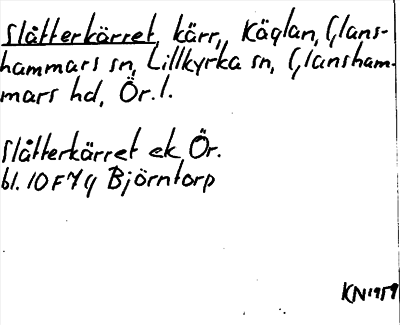 Slåtterkärret, kärr, Käglan, Glans-
hammars sn, Lillkyrka sn, Glansham-
mars hd, Ör. l.
Slåtterkärret ek, Ör.
bl. 10F7g Björntorp
KN 1959